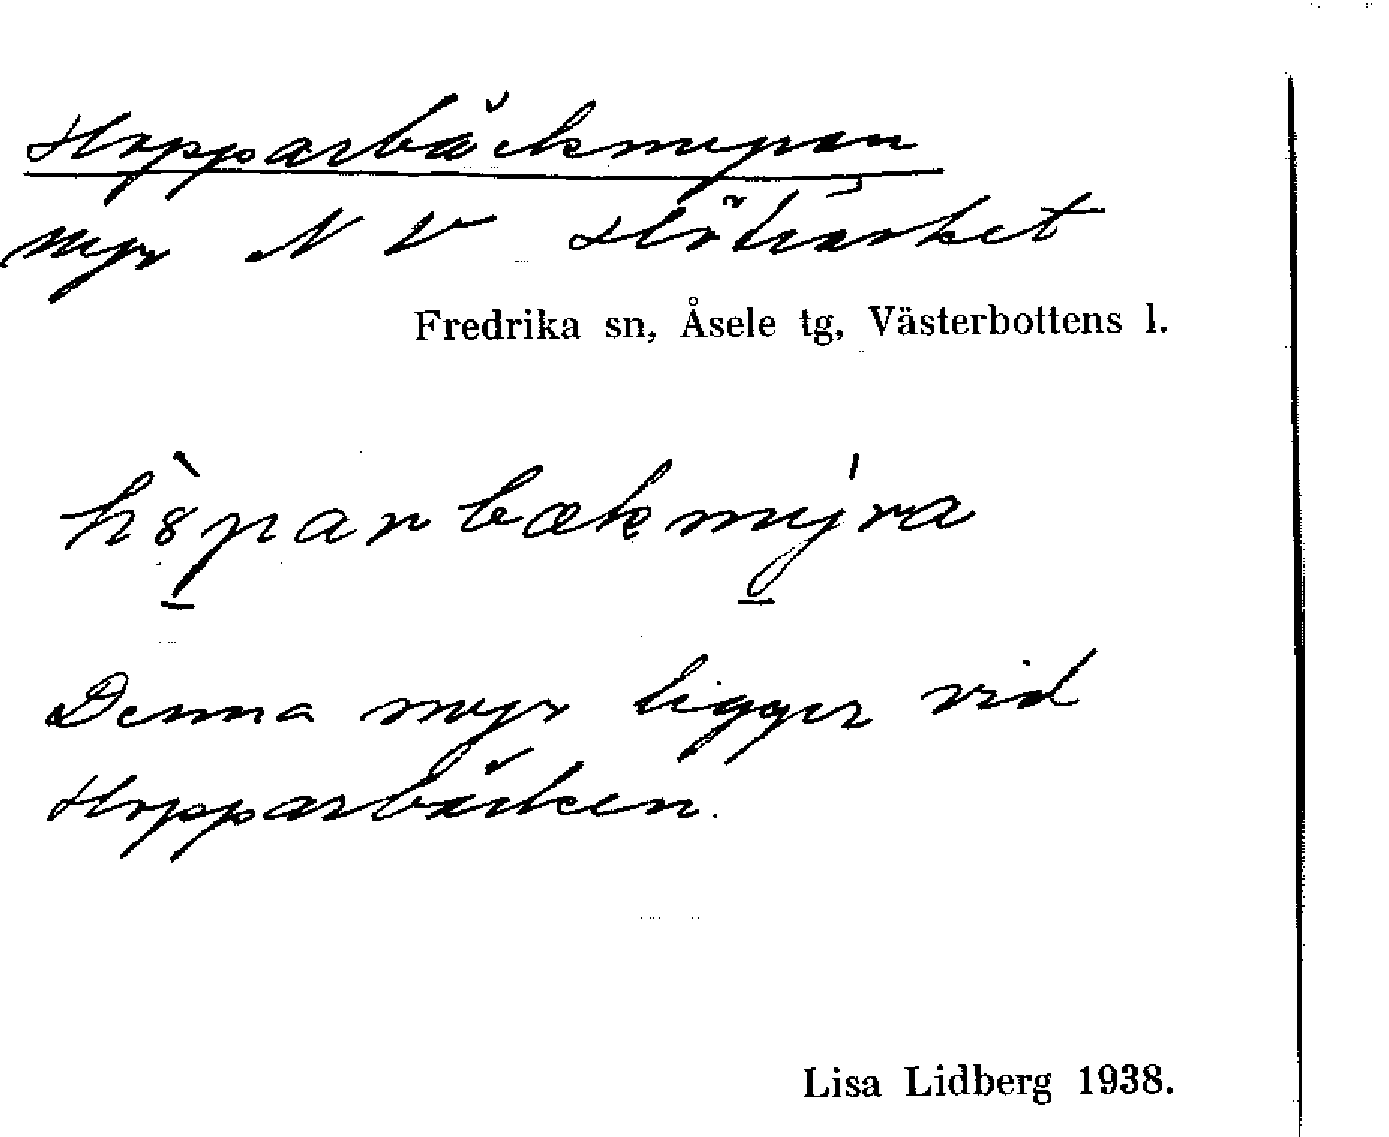 Hopparbäckmyran
Myr N V Högträsket
Fredrika sn, Åsele tg, Västerbottens l.
hòparbækmýra
Denna myr ligger vid
Hopparbäcken.
Lisa Lidberg 1938.